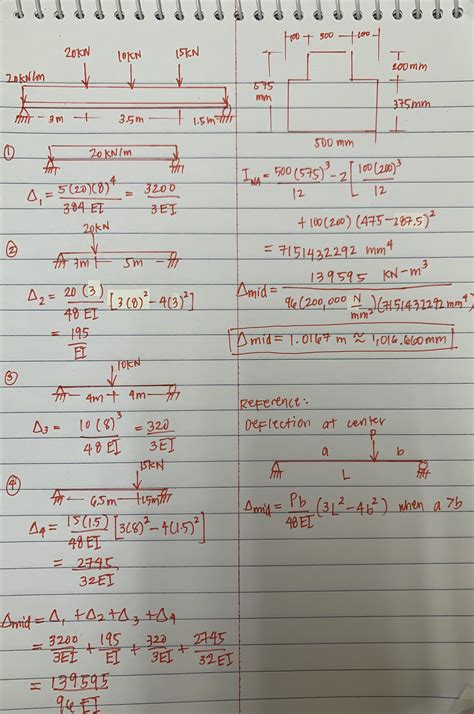 20KN 10KN 15KN
20KN/m
3m 3.5m 1.5m
① 20KN/m
Δ₁ = 5(20)(8)⁴ / 384 EI = 3200 / 3EI
20KN
② 3m 5m
Δ₂ = 20(3) / 48 EI [3(8)² - 4(3)²]
= 195 / EI
10KN
③ 4m 4m
Δ₃ = 10(8)³ / 48 EI = 320 / 3EI
15KN
④ 6.5m 1.5m
Δ₄ = 15(1.5) / 48 EI [3(8)² - 4(1.5)²]
= 2745 / 32EI
Δmid = Δ₁ + Δ₂ + Δ₃ + Δ₄
= 3200 / 3EI + 195 / EI + 320 / 3EI + 2745 / 32EI
= 139595 / 96 EI
100 300 100
575 mm
200mm
375mm
500 mm
I NA = 500(575)³ / 12 - 2 [ 100(200)³ / 12
+ 100(200)(475-287.5)²
= 7151432292 mm⁴
Δmid = 139595 KN-m³ / 96(200,000 N/mm²)(7151432292 mm⁴)
Δmid = 1.0167 m ≈ 1,016.660mm
Reference:
Deflection at center
P
a b
L
Δmid = Pb / 48EI (3L² - 4b²) when a > b